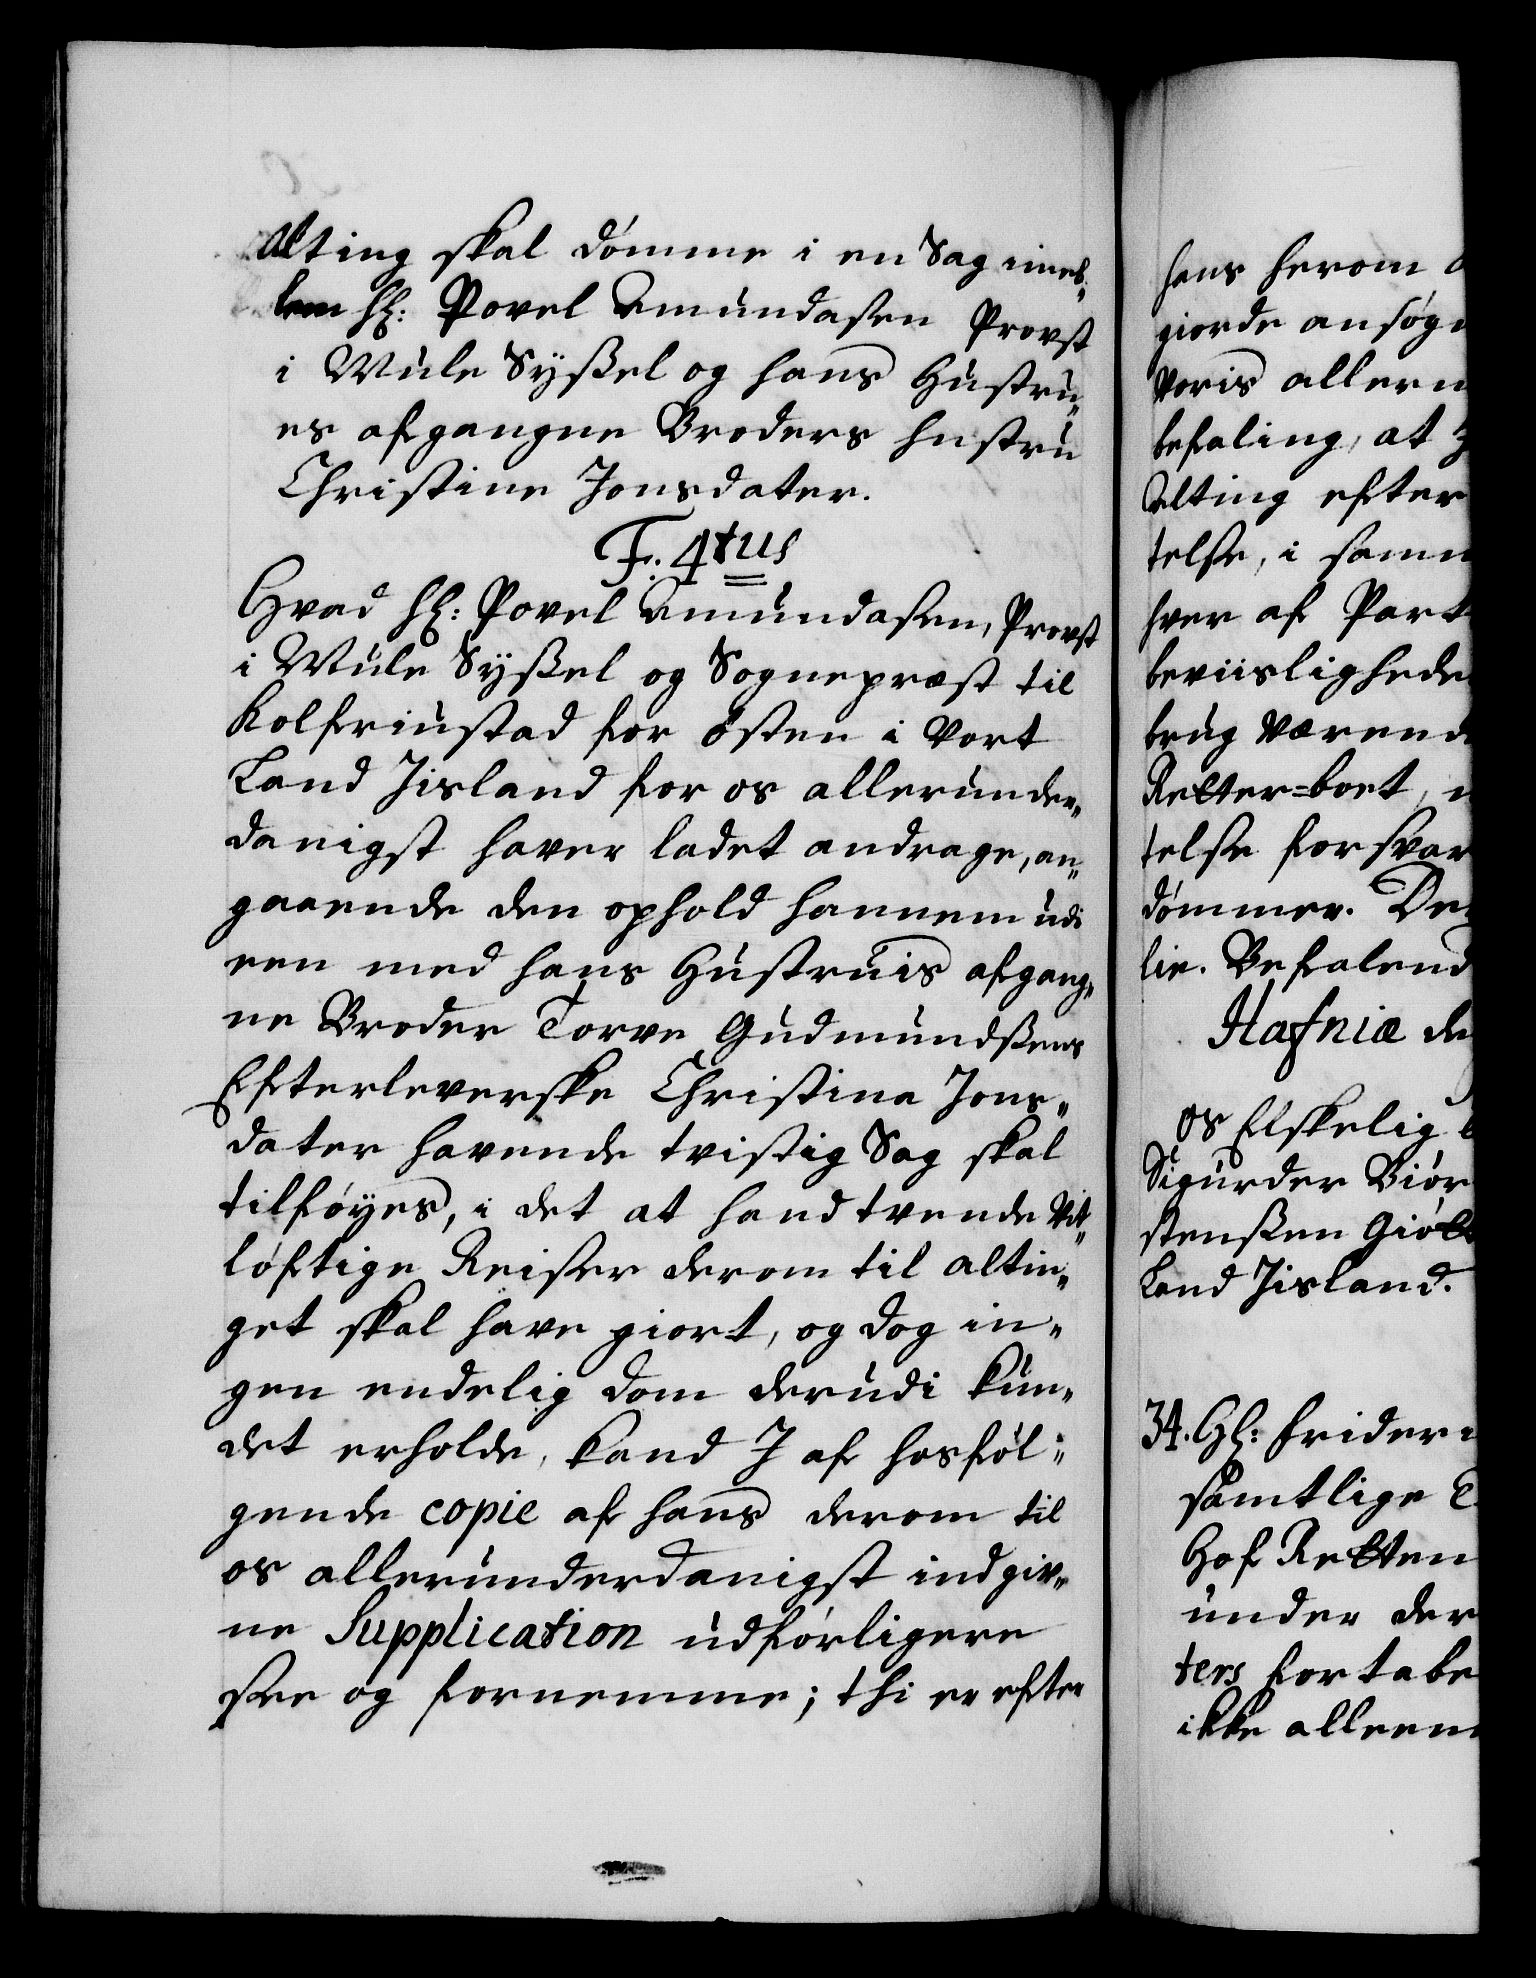 Alting skal dömme i en Sag imel-
lem Hr: Povel Amundasen Provst
i Mule Sÿssel og hans Hustru-
es afgangne Broders Hustru
Christine Jonsdater.
F. 4tus
Hvad Hr: Povel Amundasen, Provst
i Mule Sÿssel og Sognepræst til
Kolfriustad for Østen i vort
Land Jisland for os allerunder-
danigst haver ladet andrage, an-
gaaende den ophold hannem udi
een med hans Hustruis afgang-
ne Broder Torve Gudmundssens
Efterleverske Christina Jons-
dater havende tvistig Sag skal
tilföyes, i det at hand tvende vit-
löftige Reiser derom til altin-
get skal have giort, og dog in-
gen endelig dom derudi kun-
det erholde, kand J af hosföl-
gende copie af hans derom til
os allerunderdanigst indgiv-
ne Supplication udförligere
see og fornemme; thi er efter
hans herom
giorde ansøg
voris allern
befaling, at
Alting efter
telse, i samm
hver af Part
beviislighede
brug værend
Retter=boet,
telse forsvar
dömmer. De
lie. Befalend
Hafniæ de
Os Elskelig
Sigurder Biör
stenssen Giöt
Land Jisland.
34. Hr: Frideri
samtlige
Hof Retten
under der
ters fortabe
ikke alleen